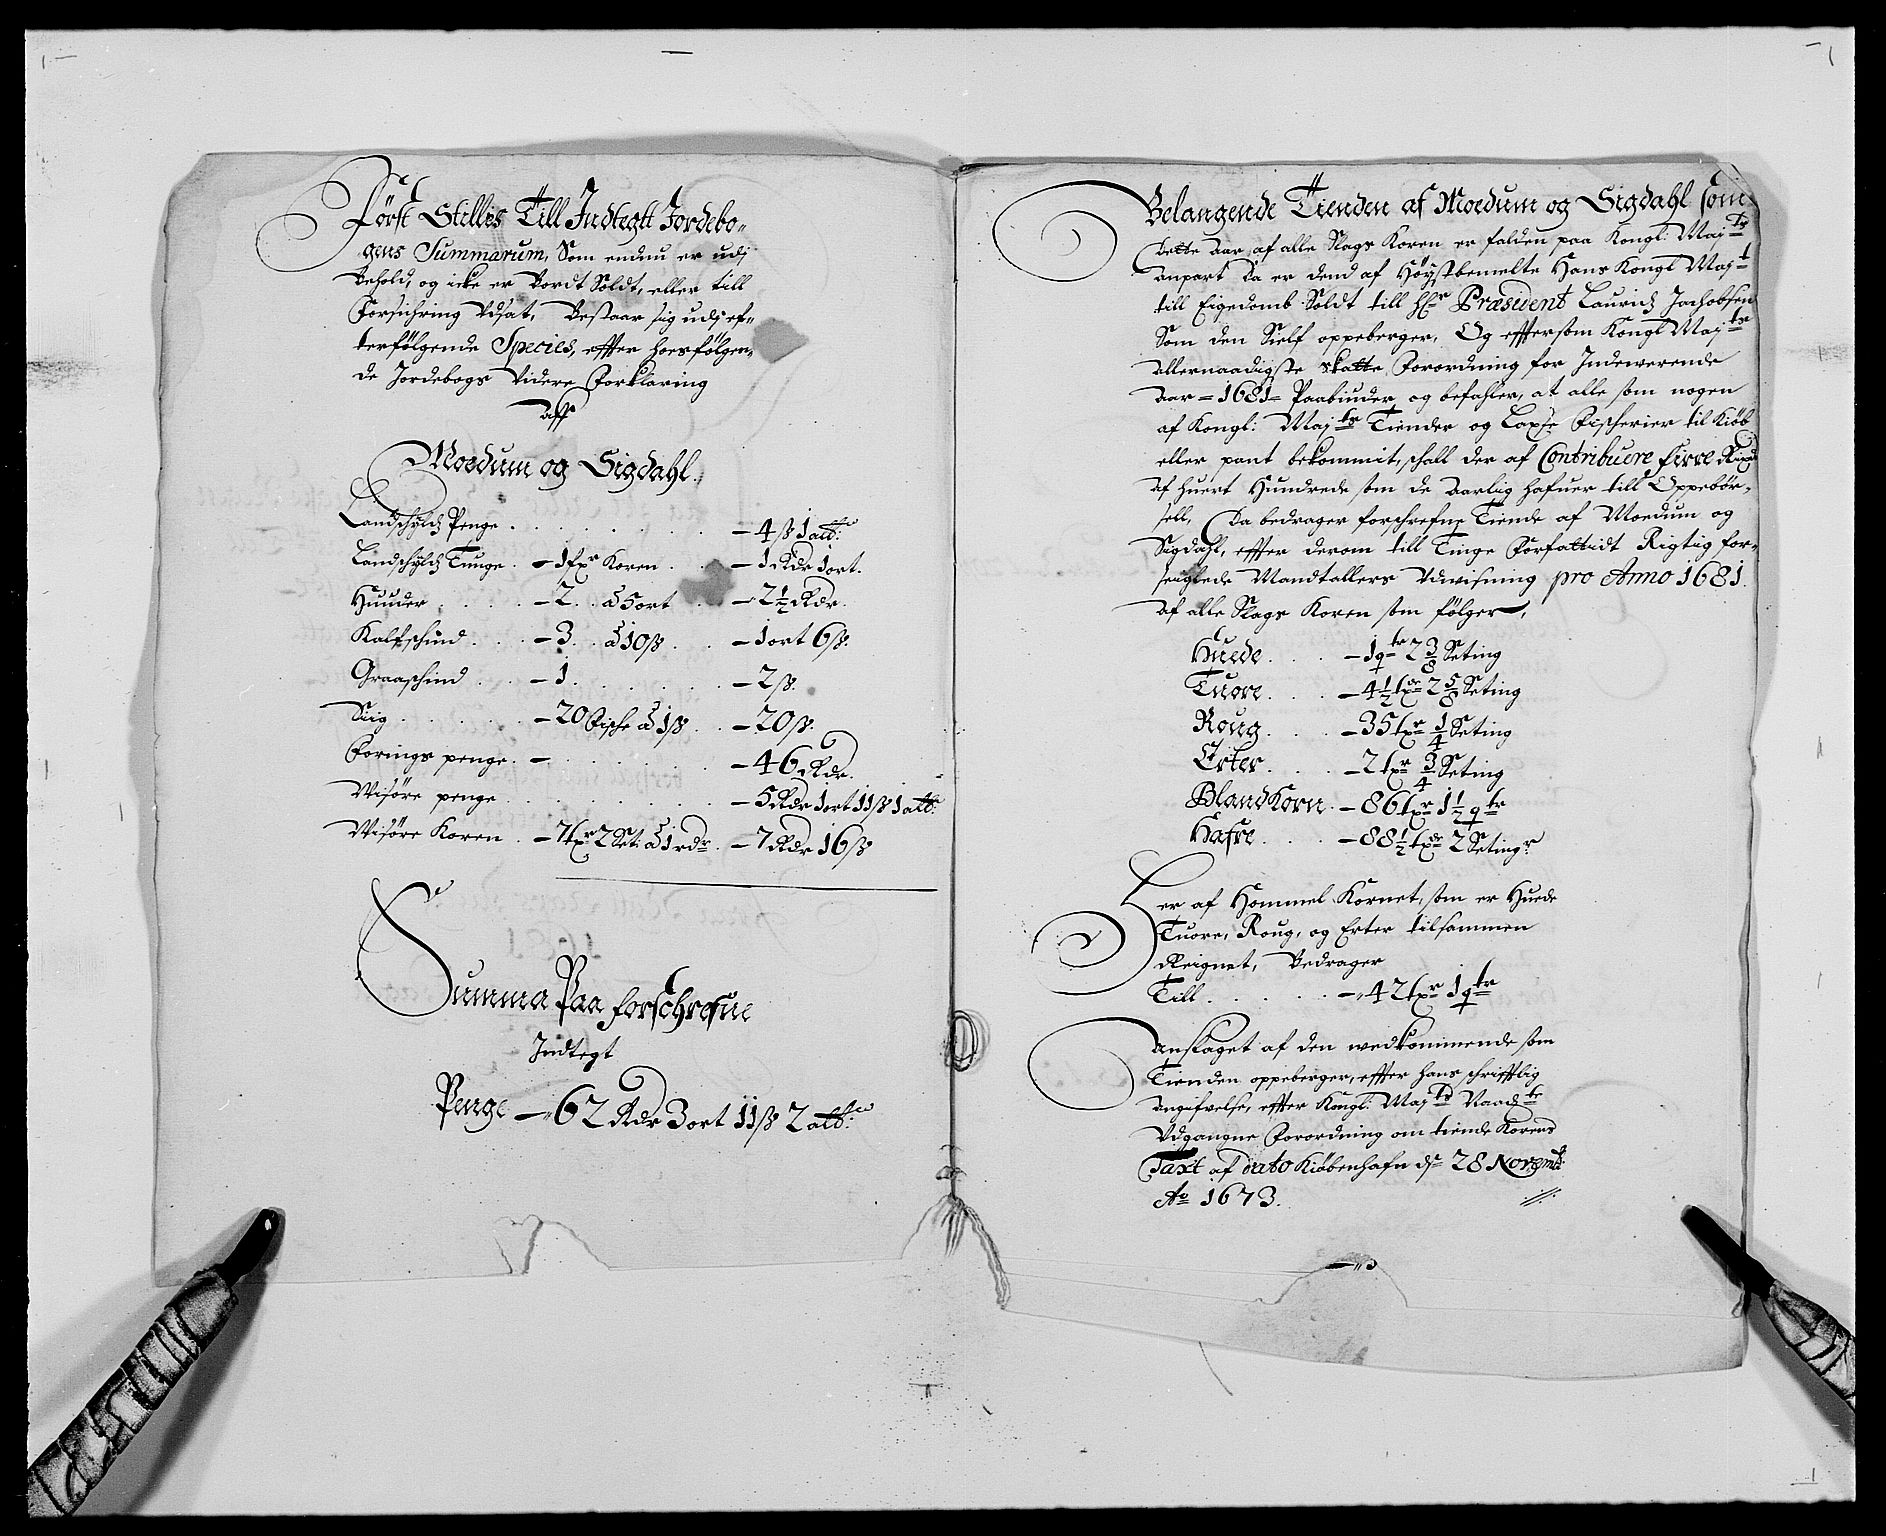 Først Stilles Till Indtegtt Jordebo-
gens Summarum, Som endnu er udj
Behold, og icke er Bordt Soldt, eller till
Forsichring Udsat, Bestaar sig udj ef-
terfølgende Species, effter hoesfølgen-
de Jordebogs Videre Forklaring
Aff
Moedum og Sigdahl.
Landschyld Penge . . . . . . – 4 ß 1 alb:
Landschyld Tunge . – 1 fxr Koren . . – 1 Rdr 1 ort.
Huuder . . . – 2 . . à 5 ort . . – 2½ Rdr.
Kalfschind . . . – 3 . . à 10 ß . . – 1 ort 6 ß.
Graaschind . . – 1 . . . . . – 2 ß.
Siig . . . . . – 20 Fische à 1 ß . . – 20 ß.
Forings penge . – . . . . . – 46 Rdr.
Wisøre penge . . . . . . . – 5 Rdr 1 ort 11 ß 1 alb:
Wisøre Koren . – 7 txr 2 Set: à 1 rdr . – 7 Rdr 16 ß
Summa Paa forschrefne
Indtegt
Penge – 62 Rdr 3 ort 11 ß 2 alb:
Belangende Tienden af Moedum og Sigdahl som
dette Aar af alle Slags Koren er falden paa Kongl: Maj:ts
anpart Da er dend af Høystbemelte Hans Kongl Maj:t
till Eigedomb Soldt till Hr Præsident Lauridz Jachobsen
Som den Sielf oppeberger, Og efftersom Kongl Maj:ts
allernaadigste skatte Forordning for Indewerende
Aar = 1681 = Paabiuder og befahler, at alle som nogen
af Kongl: Maj:ts Tiender og Laxse Fischerier til Kiøb
eller pant bekommit, schall der af Contribuere firre Rixdr
af huert Hundrede som de Aarlig hafuer till Oppebør-
sell, Da bedrager forschrefne Tiende af Moedum og
Sigdahl, effter derom till Tinge Forfattidt Rigtig for-
seiglede Mandtallers Udwisning pro Anno 1681.
Af alle Slags Koren som følger,
Huede . . . – 1 qtr 2 3/8 Seting
Tuore . . . – 4½ txr 2 5/8 Seting
Roug . . . – 35 txr 1/4 Seting
Erter . . . – 2 txr 3/4 Seting
BlandKorn . – 86 txr 1½ qtr
Hafre . . . – 88½ txr 2 Setingr
Her af Hommel Kornet, som er Huede
Tuore, Roug, og Erter tilsammen
Reignet, Bedrager
Till . . . . . – 42 txr 1 qtr
Anslaget af den wedkommende som
Tienden oppeberger, effter hans schrifftlig
Angifvelse, effter Kongl: Maj:ts Naadste
Udgangne Forordning om tiende Korens
Taxt af dato Kiøbenhafn dn 28 Novembr:
Ao 1673.